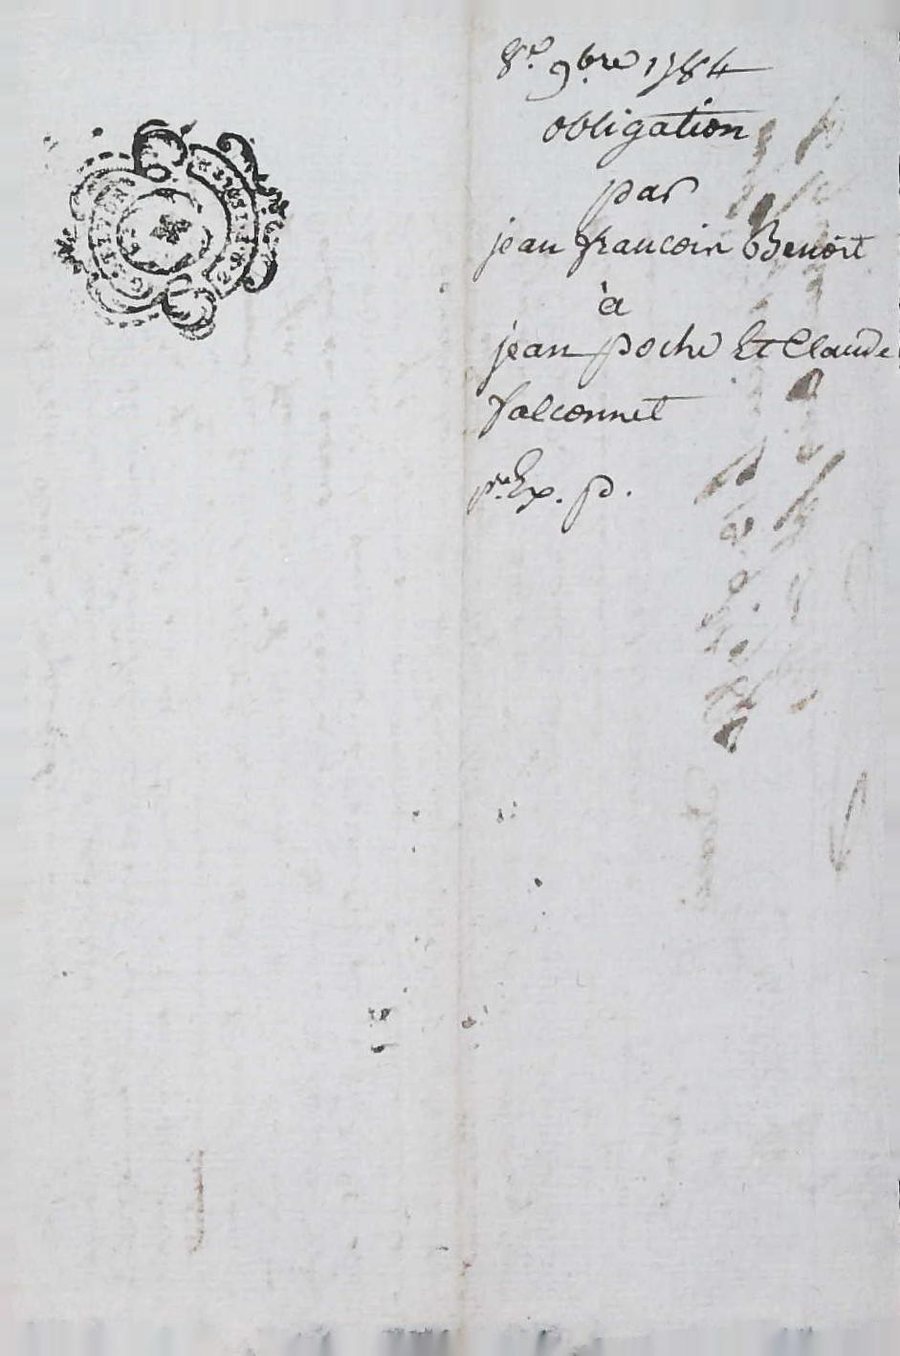 8e 9bre 1784
obligation
par
jean francois Benoit
à
jean poche Et Claude
falconnet
pre Ex. p.